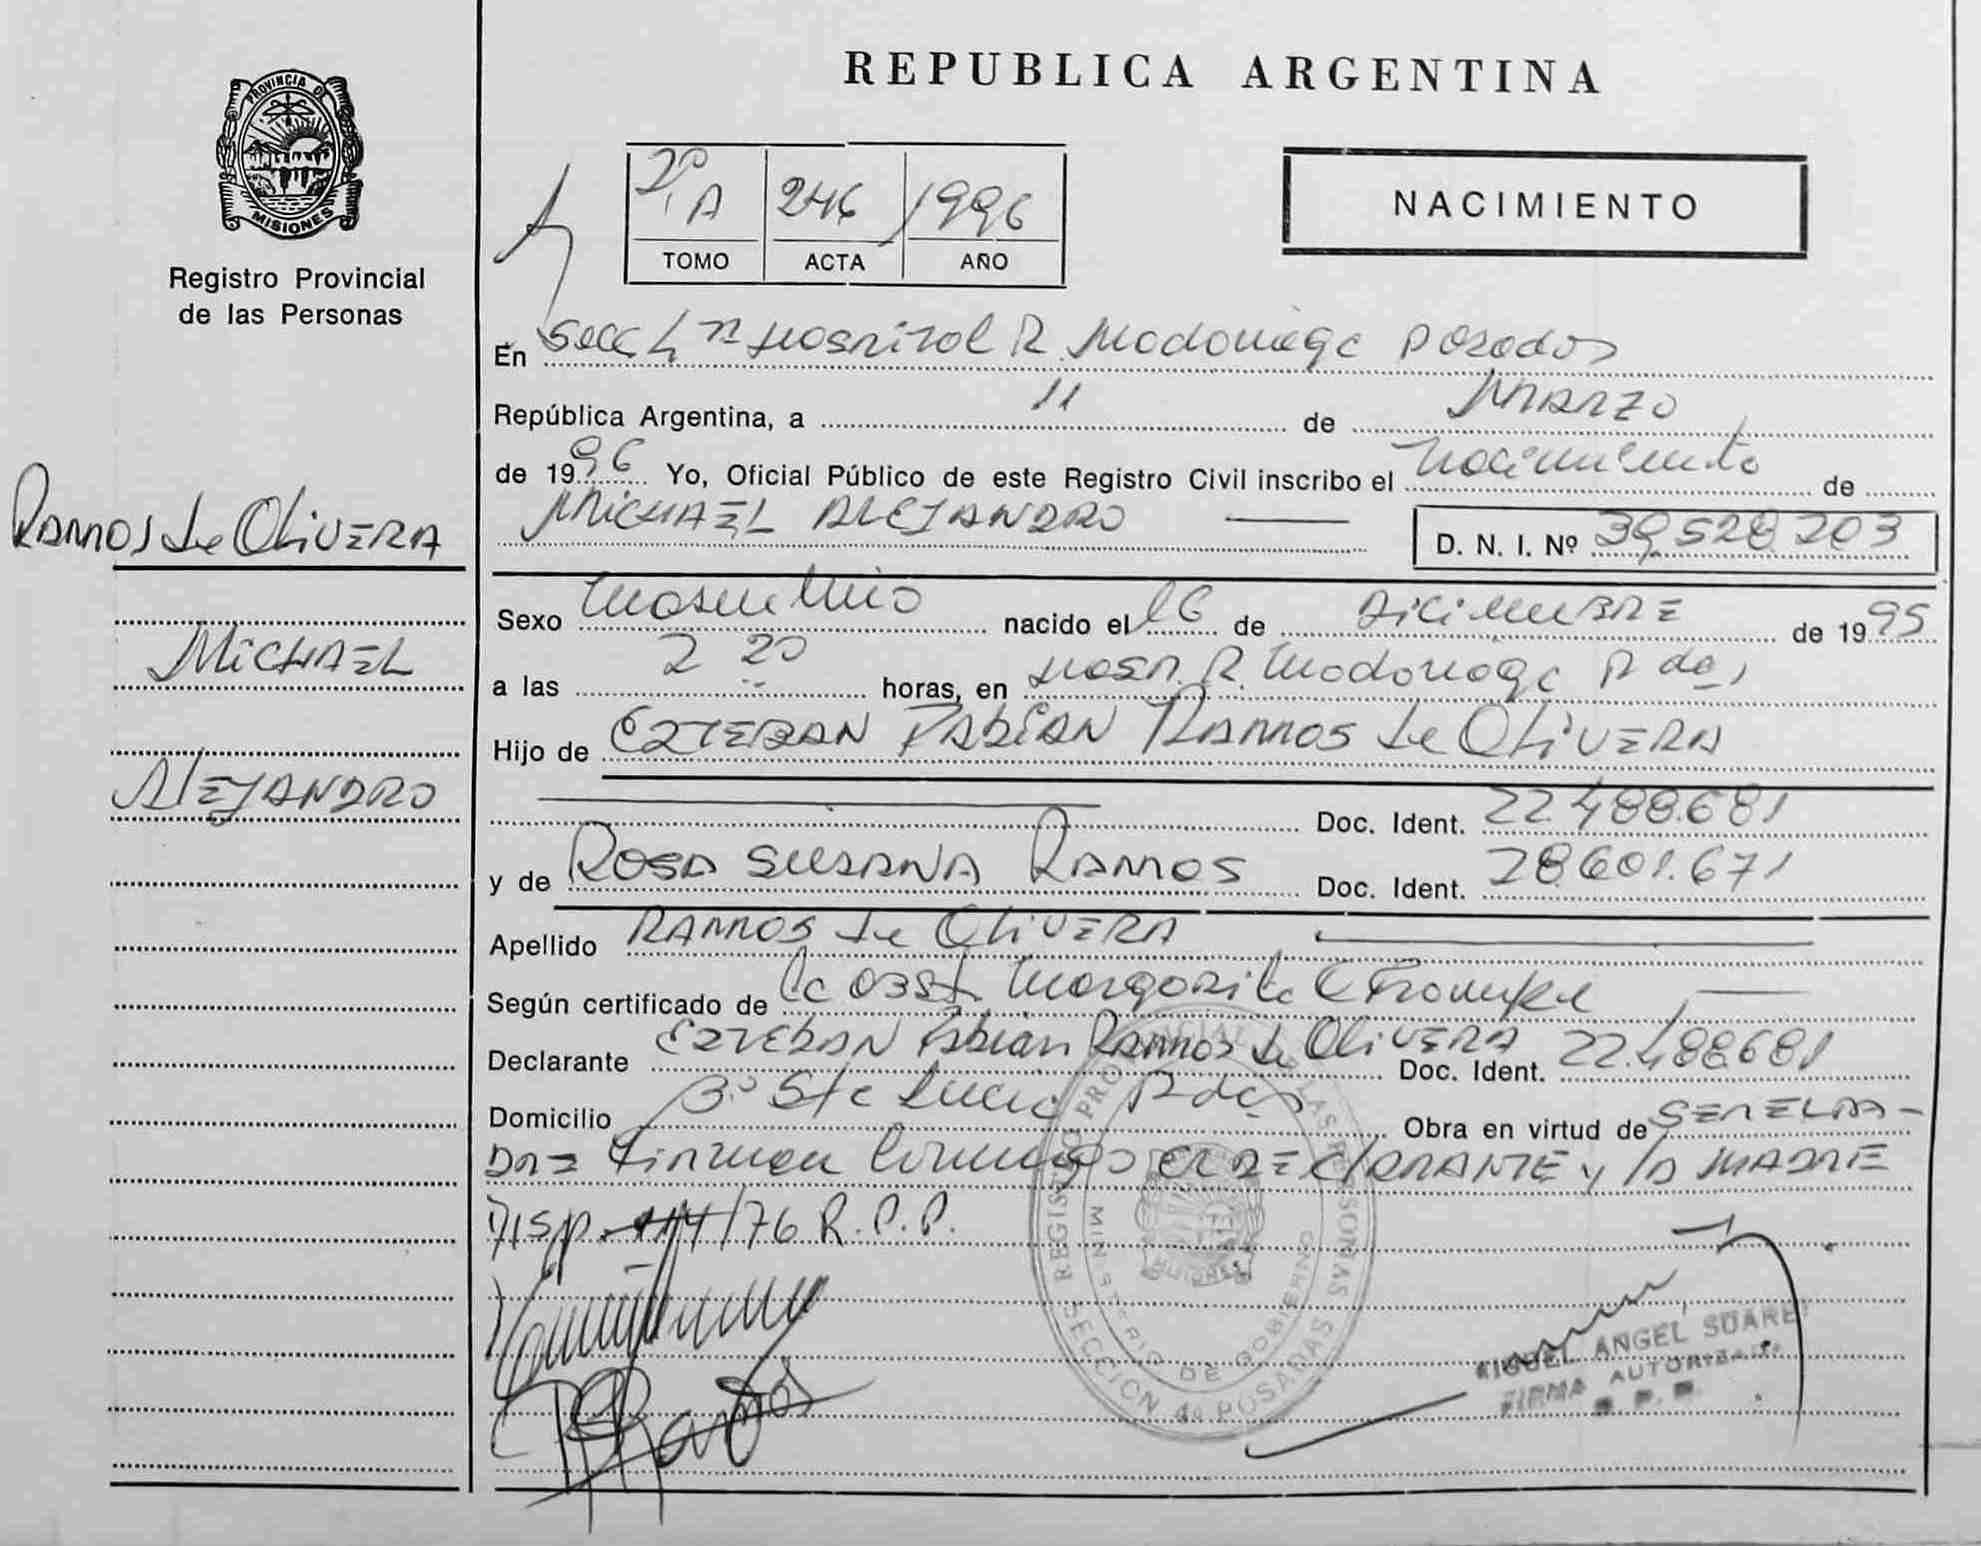 REPUBLICA ARGENTINA
PROVINCIA DE
MISIONES
Registro Provincial
de las Personas
2º A 246 1996
TOMO ACTA AÑO
NACIMIENTO
En Secc 4ª Hospital R. Madariaga Posadas
República Argentina, a 11 de MARZO
de 1996 Yo, Oficial Público de este Registro Civil inscribo el Nacimiento de
MICHAEL ALEJANDRO D. N. I. Nº 39.528.203
RAMOS de OLIVERA
MICHAEL
ALEJANDRO
Sexo Masculino nacido el 16 de DICIEMBRE de 1995
a las 2 20 horas, en Hosp. R. Madariaga Pdas
Hijo de EZTEBAN FABIAN RAMOS de OLIVERA
Doc. Ident. 22.488.681
y de ROSA SUSANA RAMOS Doc. Ident. 28.601.671
Apellido RAMOS de OLIVERA
Según certificado de la Obst Margarita
Declarante EZTEBAN Fabián Ramos de OLIVERA Doc. Ident. 22.488.681
Domicilio Bº Sta Lucia Pdas Obra en virtud de
Firman Conmigo el DECLARANTE y la MADRE
DISP. /76 R.P.P.
REGISTRO PROVINCIAL DE LAS PERSONAS
MINISTERIO DE GOBIERNO
MISIONES
SECCION 4a POSADAS
Ramos
MIGUEL ANGEL SUAREZ
FIRMA AUTORIZADA
R. P. P.